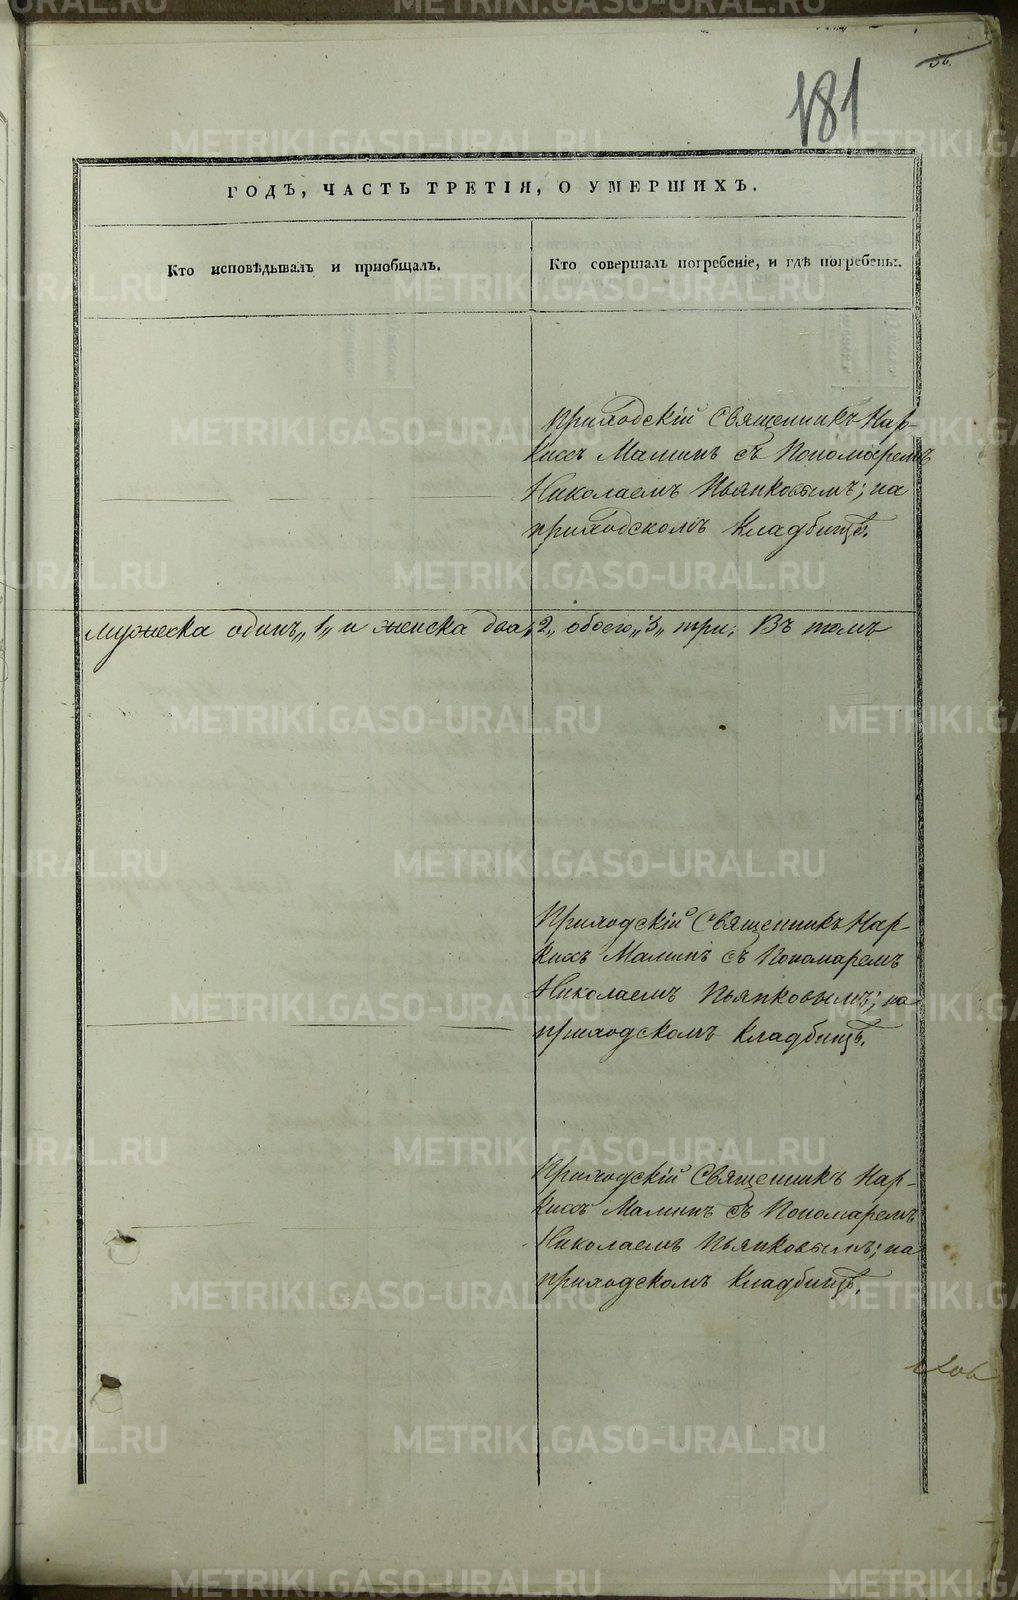 56.
181
ГОДЪ, ЧАСТЬ ТРЕТІЯ, О УМЕРШИХЪ.
Кто исповѣдывалъ и пріобщалъ.
Кто совершалъ погребеніе, и гдѣ погребены.
Приходскій Священникъ Нар-
киссъ Маминъ съ Пономаремъ
Николаемъ Пьянковымъ; на
приходскомъ кладбищѣ.
мужеска одинъ „1„ и женска два „2„ обоего „3„ три; Въ томъ
Приходскій Священникъ Нар-
кисъ Маминъ съ Пономаремъ
Николаемъ Пьянковымъ; на
приходскомъ кладбищѣ.
Приходскій Священникъ Нар-
киссъ Маминъ съ Пономаремъ
Николаемъ Пьянковымъ; на
приходскомъ кладбищѣ.
METRIKI.GASO-URAL.RU